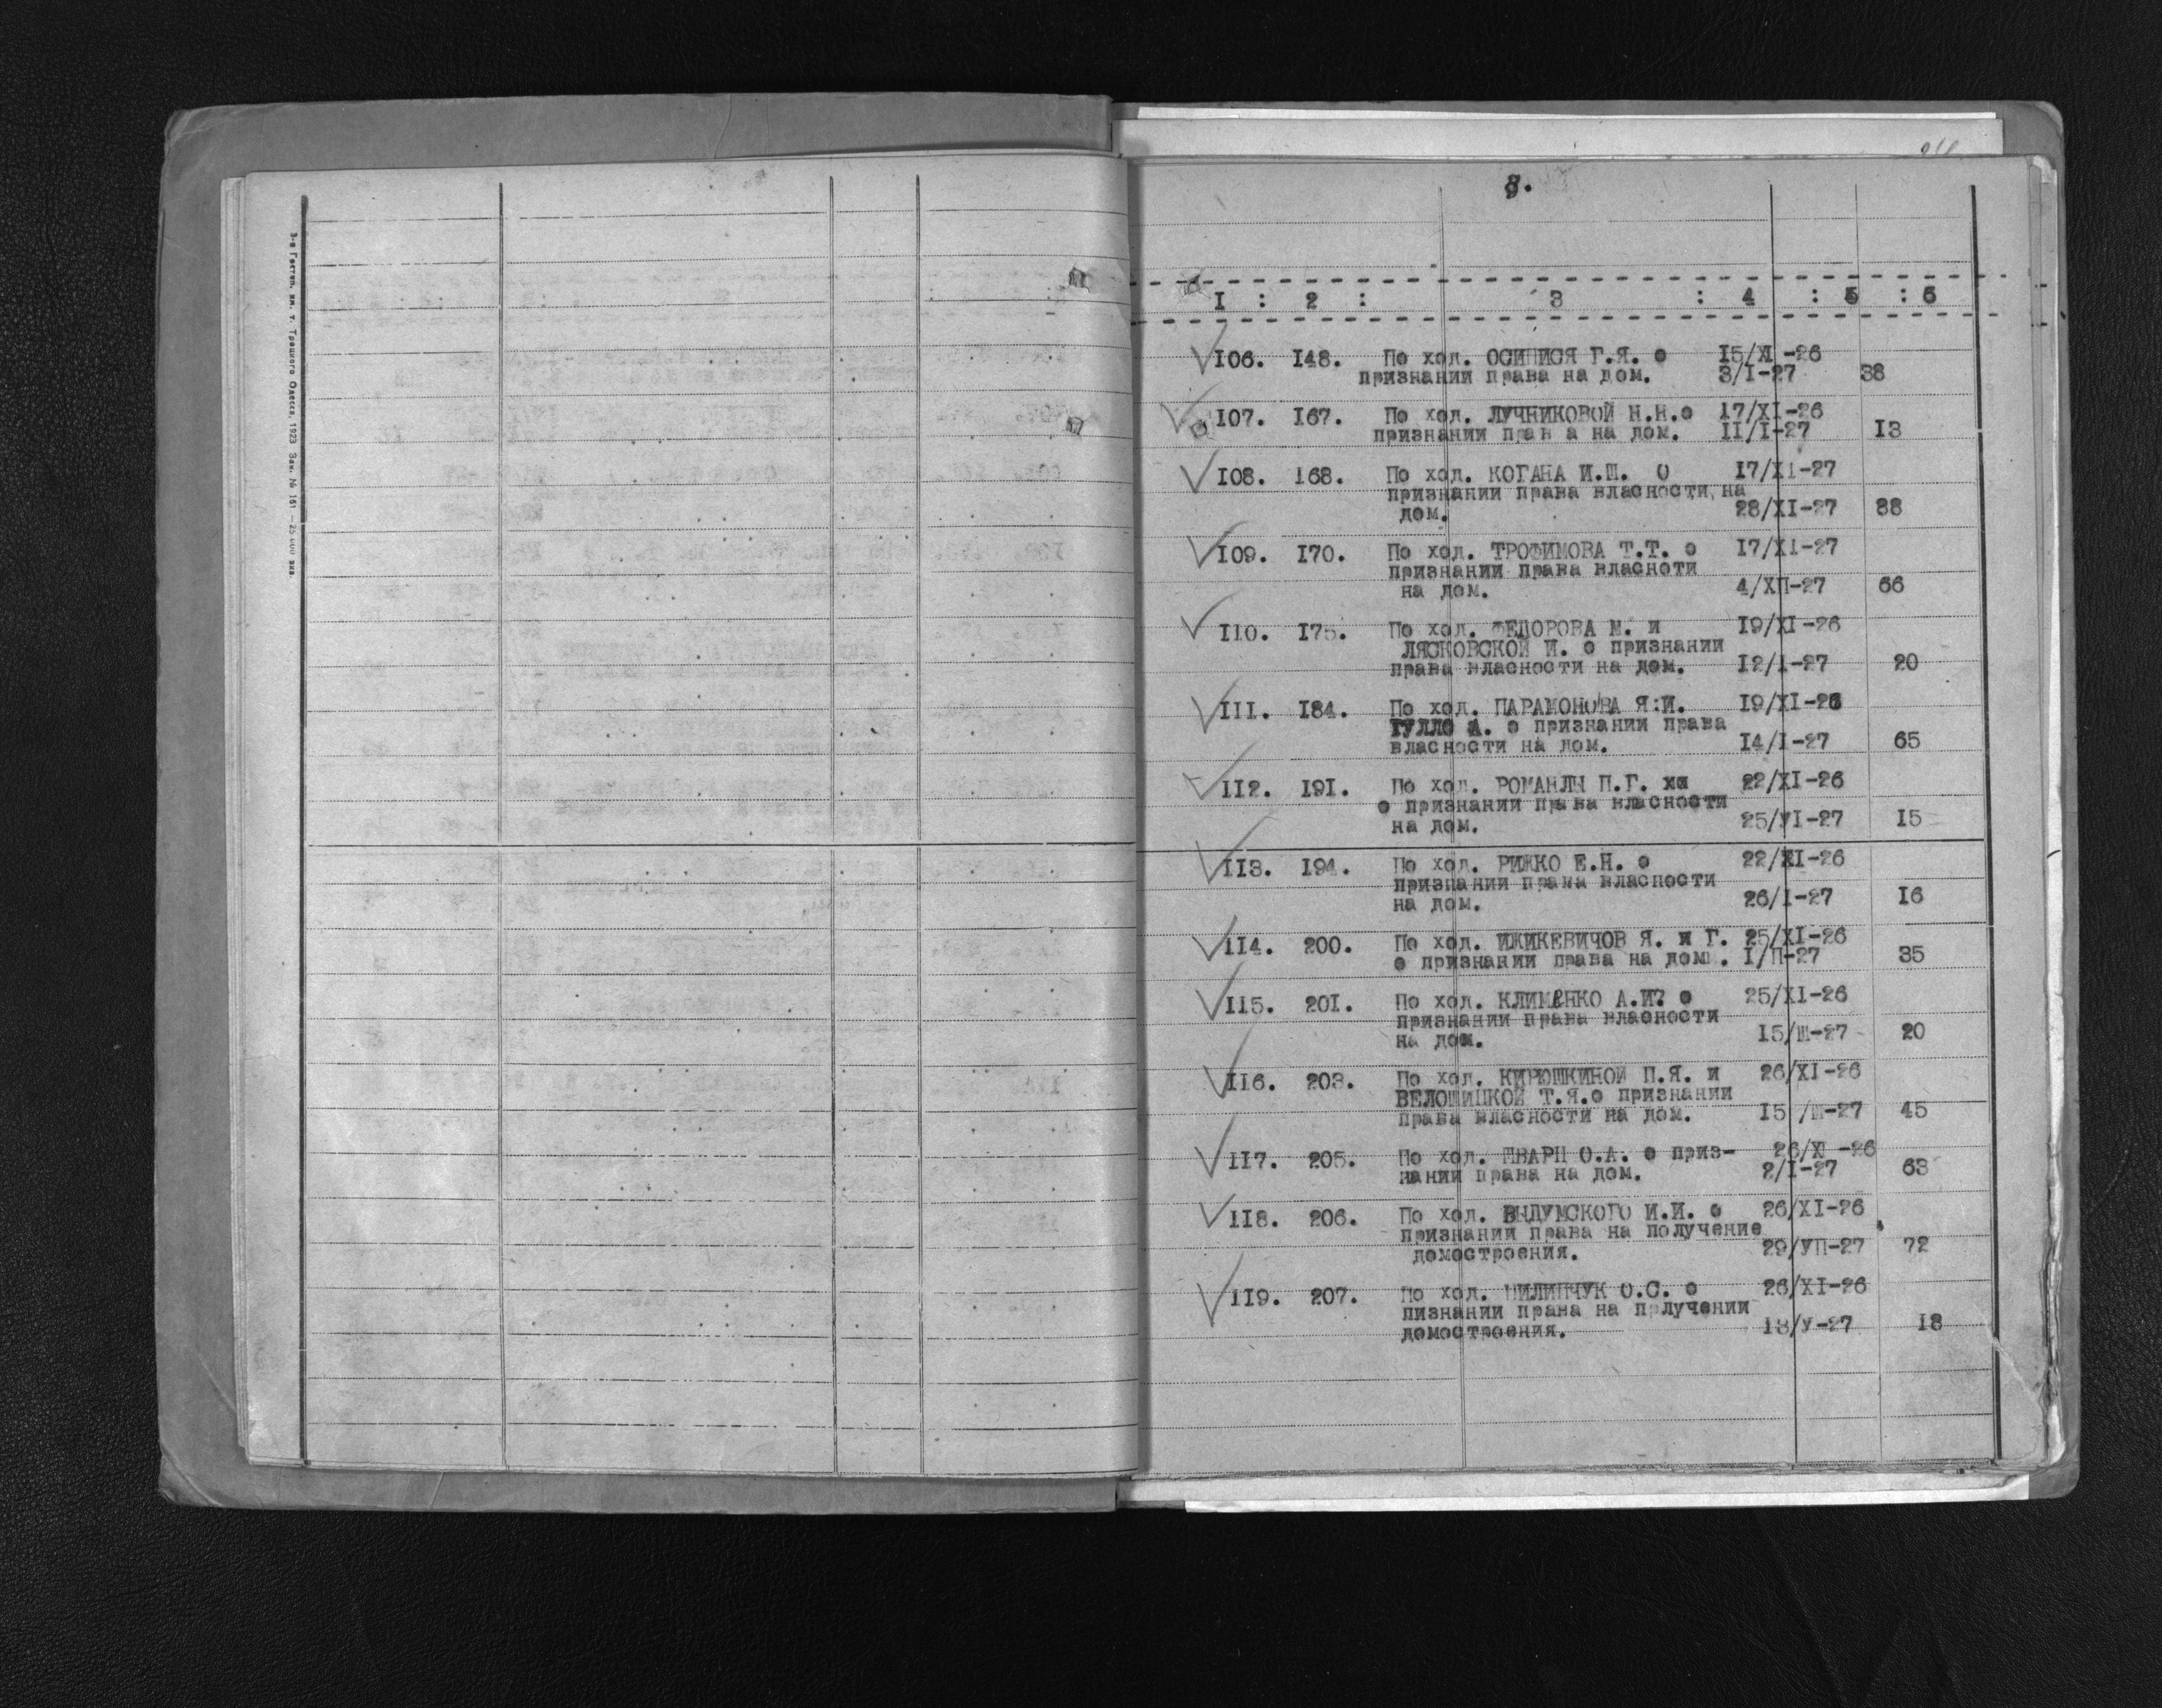 3-я Гостип. им. т. Троцкого Одесса, 1923 Зак. № 161 — 25.000 экз.
8.
I : 2 : 3 : 4 : 5 : 6
I06. I48. По ход. ОСИПИСЯ Г.Я. о I5/XI -26
признании права на дом. 3/I-27 38
I07. I67. По ход. ЛУЧНИКОВОЙ Н.Н.о I7/XI-26
признании прав а на дом. II/I-27 I3
I08. I68. По ход. КОГАНА И.Ш. О I7/XI-27
признании права власности на
дом. 28/XI-27 88
I09. I70. По ход. ТРОФИМОВА Т.Т. о I7/XI-27
признании права власноти
на дом. 4/ХП-27 66
II0. I75. По ход. ФЕДОРОВА М. и I9/XI-26
ЛЯСКОВСКОЙ И. о признании
права власности на дом. I2/I-27 20
III. I84. По ход. ПАРАМОНОВА Я.И. I9/XI-26
ТУЛЛО А. о признании права
власности на дом. I4/I-27 65
II2. I9I. По ход. РОМАНЛЫ П.Г. хи 22/XI-26
о признании права власности
на дом. 25/УI-27 I5
II3. I94. По ход. РИЖКО Е.Н. о 22/XI-26
признании права власности
на дом. 26/I-27 I6
II4. 200. По ход. ИЖИКЕВИЧОВ Я. и Г. 25/XI-26
о признании права на дом. I/П-27 35
II5. 20I. По ход. КЛИМЕНКО А.И. о 25/XI-26
признании права власности
на дом. I5/Ш-27 20
II6. 203. По ход. КИРЮШКИНОЙ П.Я. и 26/XI-26
БЕЛОШИЦКОЙ Т.Я.о признании
права власности на дом. I5 /Ш-27 45
II7. 205. По ход. ШВАРЦ О.А. о приз- 26/XI -26
нании права на дом. 2/I-27 63
II8. 206. По ход. ВЫДУМСКОГО И.И. о 26/XI-26
признании права на получение
домостроения. 29/УП-27 72
II9. 207. По ход. ПИЛИПЧУК О.С. о 26/XI-26
пизнании права на получении
домостроения. I3/У-27 I8